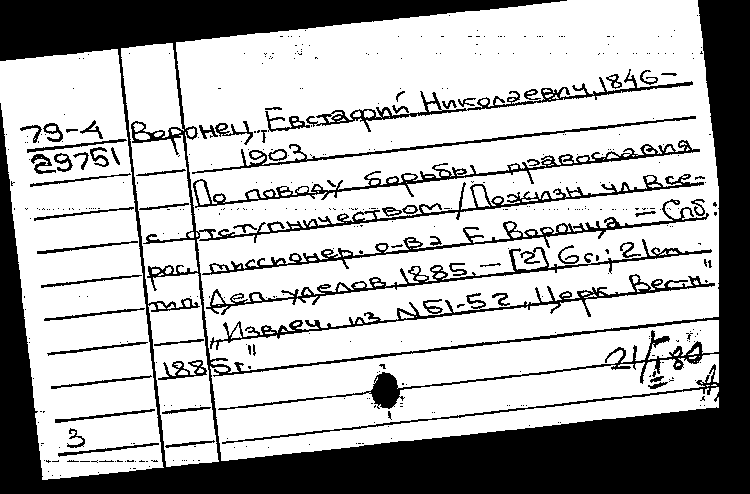 79-4 Воронец, Евстафий Николаевич, 1846-
29751 1903.
По поводу борьбы православия
с отступничеством / Пожизн. чл. Все-
рос. миссионер. о-ва Е. Воронца. — Спб.:
тип. Деп. уделов, 1885. — [2], 6 с.; 21 см.
"Извлеч. из N 51-52 „Церк. Вестн."
1885 г."
21/ 80
3